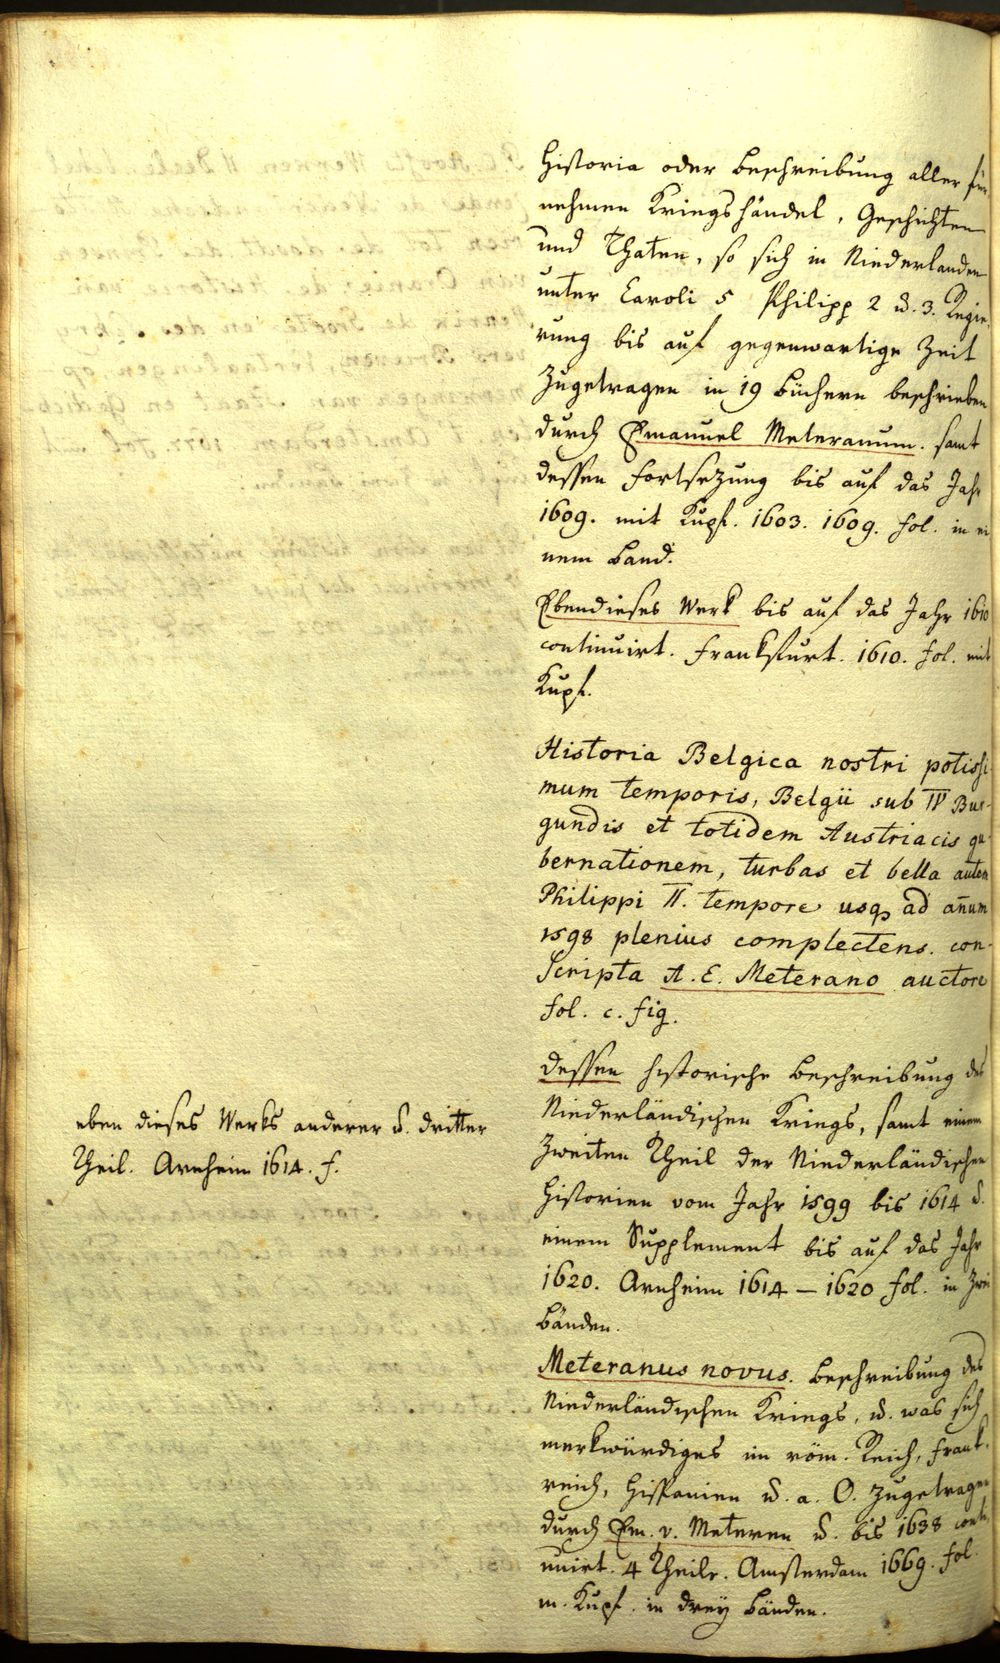 Historia oder Beschreibung aller für
nehmen Kriegshändel, Geschichten
und Thaten, so sich in Niederlanden
unter Caroli 5 Philipp 2 u. 3. Regie
rung bis auf gegenwartige Zeit
zugetragen in 19 Büchern beschrieben
durch Emanuel Meteranum. samt
dessen Fortsezung bis auf das Jahr
1609. mit Kupf. 1603. 1609. fol. in ei
nem Band.
Ebendieses Werk bis auf das Jahr 1610
continuirt. Frankfurt. 1610. fol. mit
Kupf.
Historia Belgica nostri potissi
mum temporis, Belgii sub IV Bur-
gundis et totidem Austriacis gu
bernationem, turbas et bella autem
Philippi II. tempore usq ad añum
1598 plenius complectens. con-
scripta A. E. Meterano auctore
fol. c. fig.
Dessen historische Beschreibung des
Niederländischen Kriegs, samt einem
zweiten Theil der Niederländischen
Historien vom Jahr 1599 bis 1614 u.
einem Supplement bis auf das Jahr
1620. Arnheim 1614 – 1620 fol. in zwei
Bänden.
eben dieses Werks anderer u. dritter
Theil. Arnheim 1614. f.
Meteranus novus. Beschreibung des
Niederländischen Kriegs, u. was sich
merkwürdiges im röm. Reich, Frank-
reich, Hispanien u. a. O. zugetragen
durch Em. v. Meteren u. bis 1638 conti
nuirt. 4 Theile. Amsterdam 1669. fol.
m. Kupf. in drey Bänden.